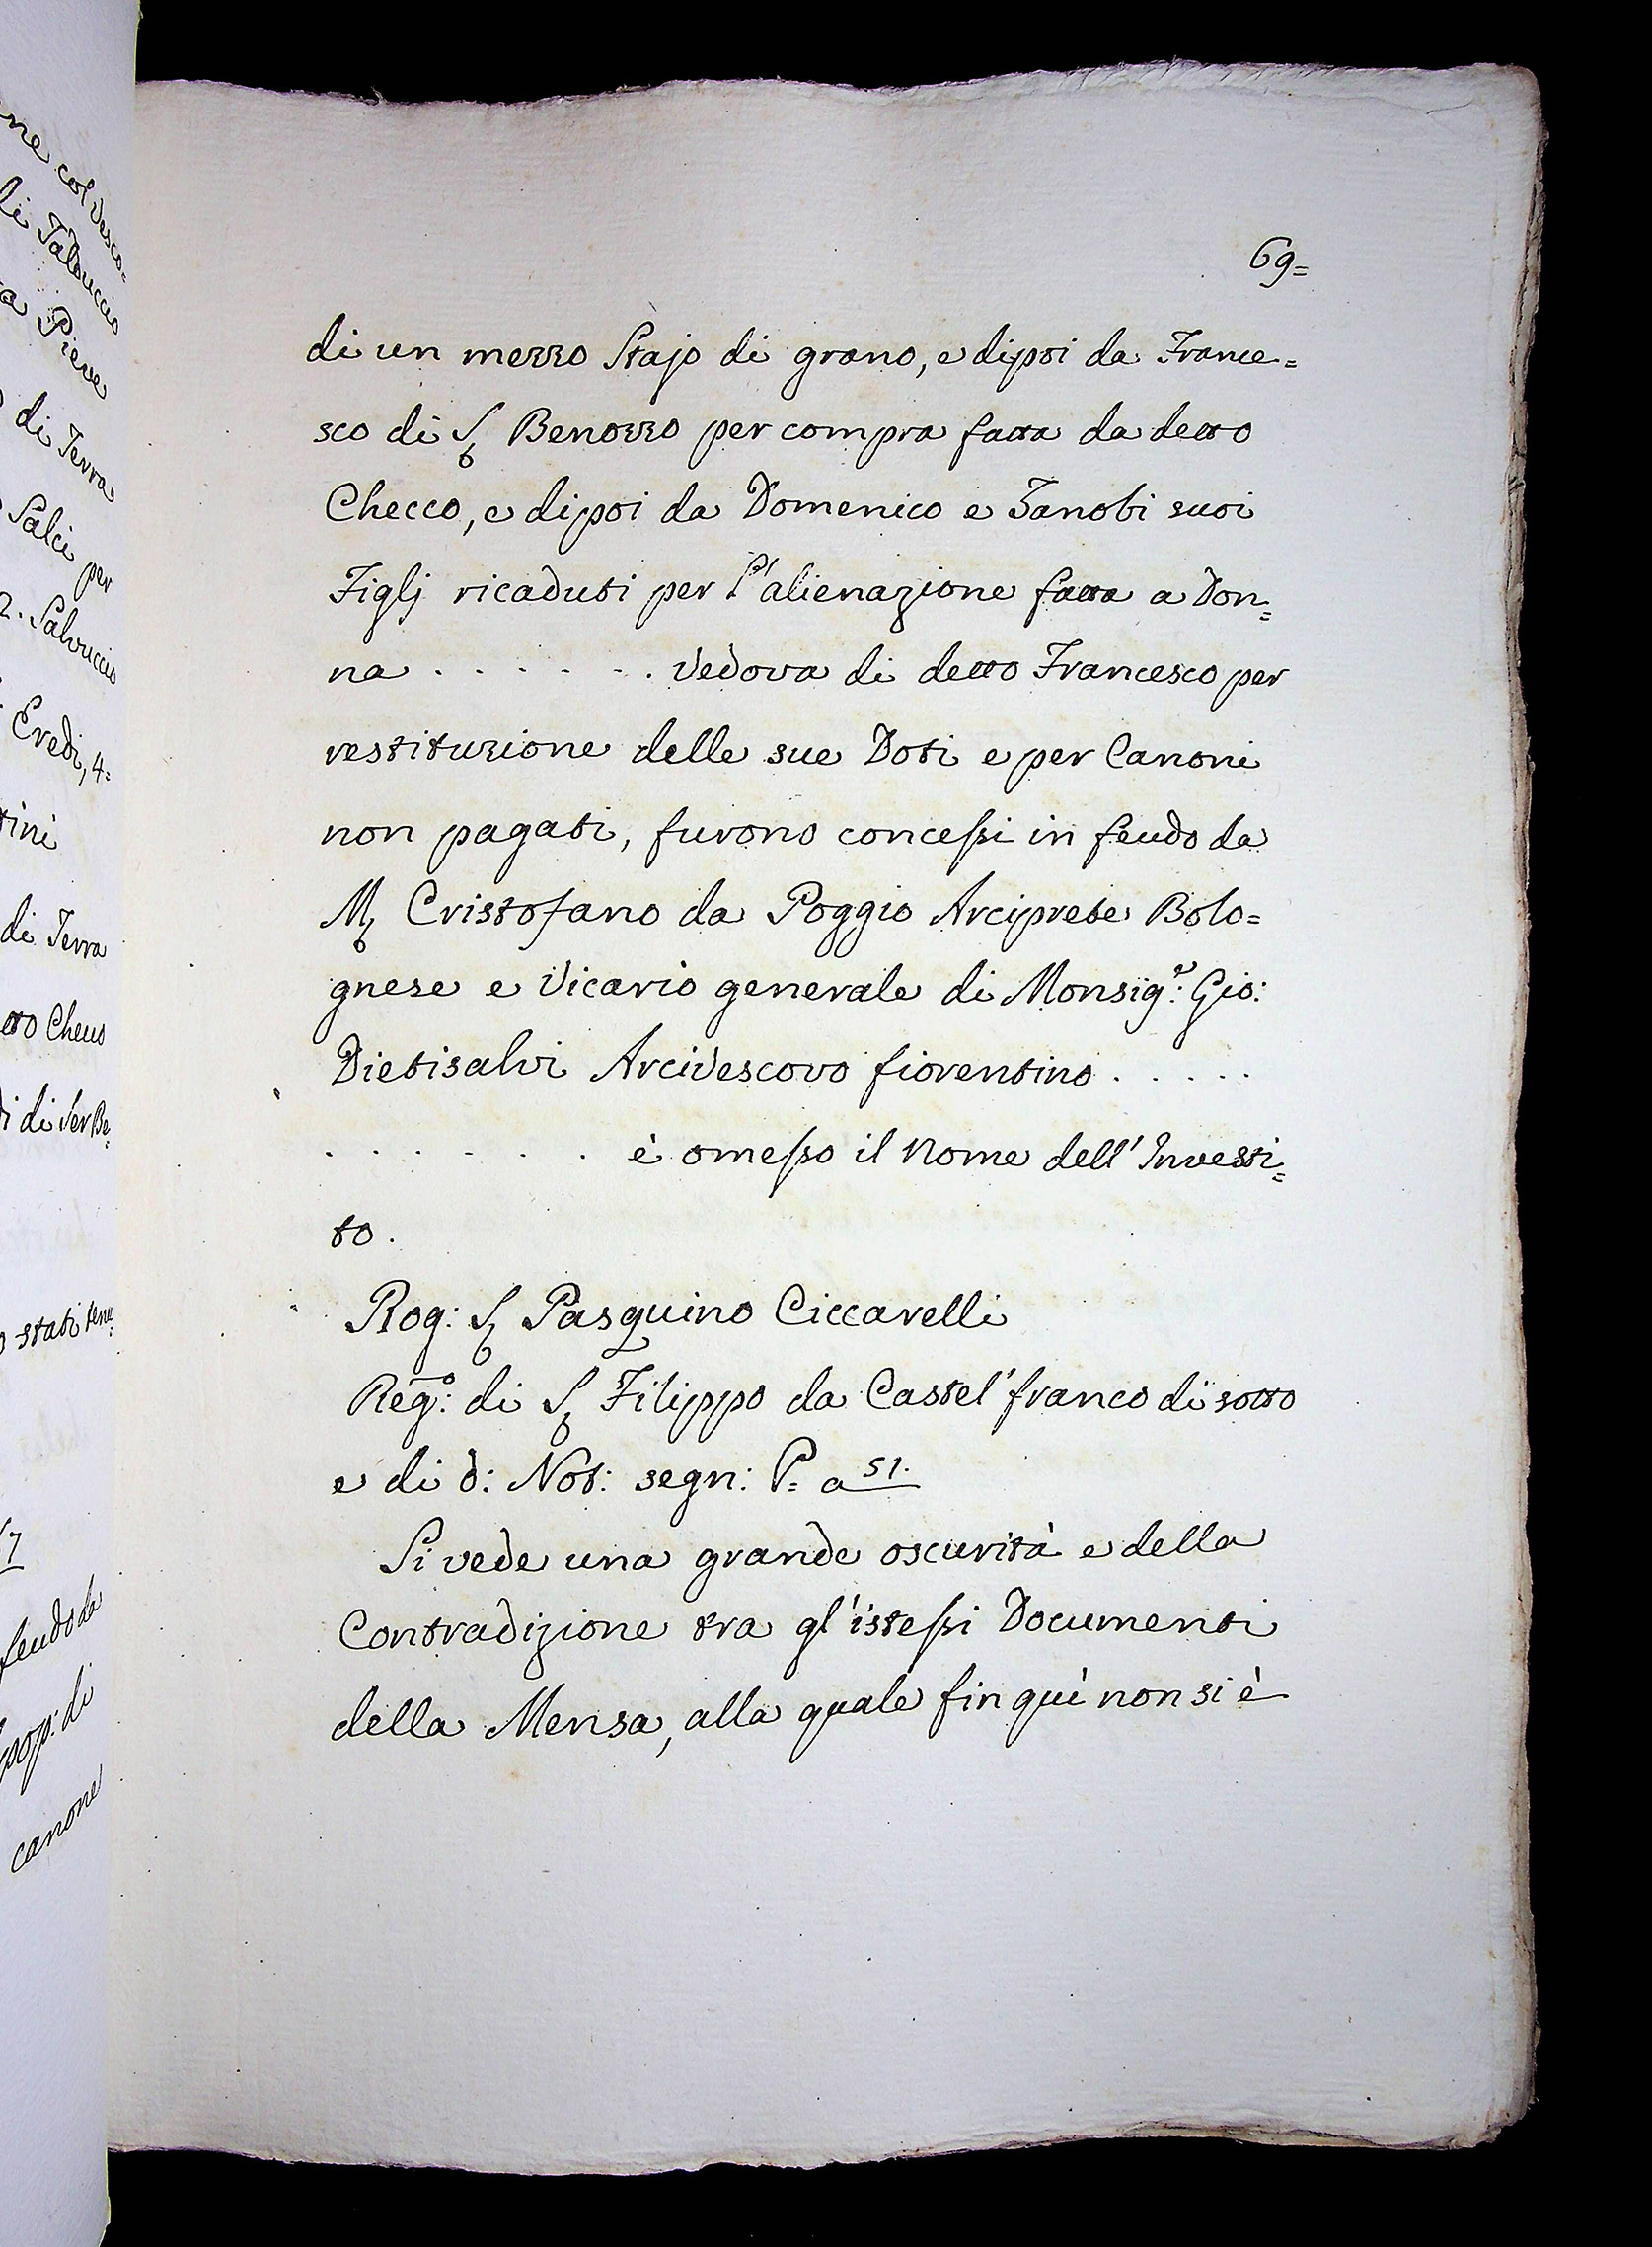 ne col Vesco=
li Talduccio
a Pieve
di Terra
Salci per
2. Salvuccio
Eredi, 4=
tini
di Terra
tto Checco
di di Ser Be=
stati tenu=
feudo da
pop: di
canone
69=
di un mezzo Stajo di grano, e dipoi da France=
sco di S Benozzo per compra fatta da detto
Checco, e dipoi da Domenico e Zanobi suoi
Figlj ricaduti per l'alienazione fatta a Don=
na . . . . . . . Vedova di detto Francesco per
restituzione delle sue Doti e per Canoni
non pagati, furono concessi in feudo da
M Cristofano da Poggio Arciprete Bolo=
gnese e Vicario generale di Monsig:r Gio:
Dietisalvi Arcivescovo fiorentino . . . . .
. . . . . . . è omesso il Nome dell'Investi=
to.
Rog: S Pasquino Ciccarelli
Reg:o di S Filippo da Castel'franco di sotto
e di d: Not: segn: P. a 51.
Si vede una grande oscurità e della
Contradizione tra gl'istessi Documenti
della Mensa, alla quale fin quì non si è